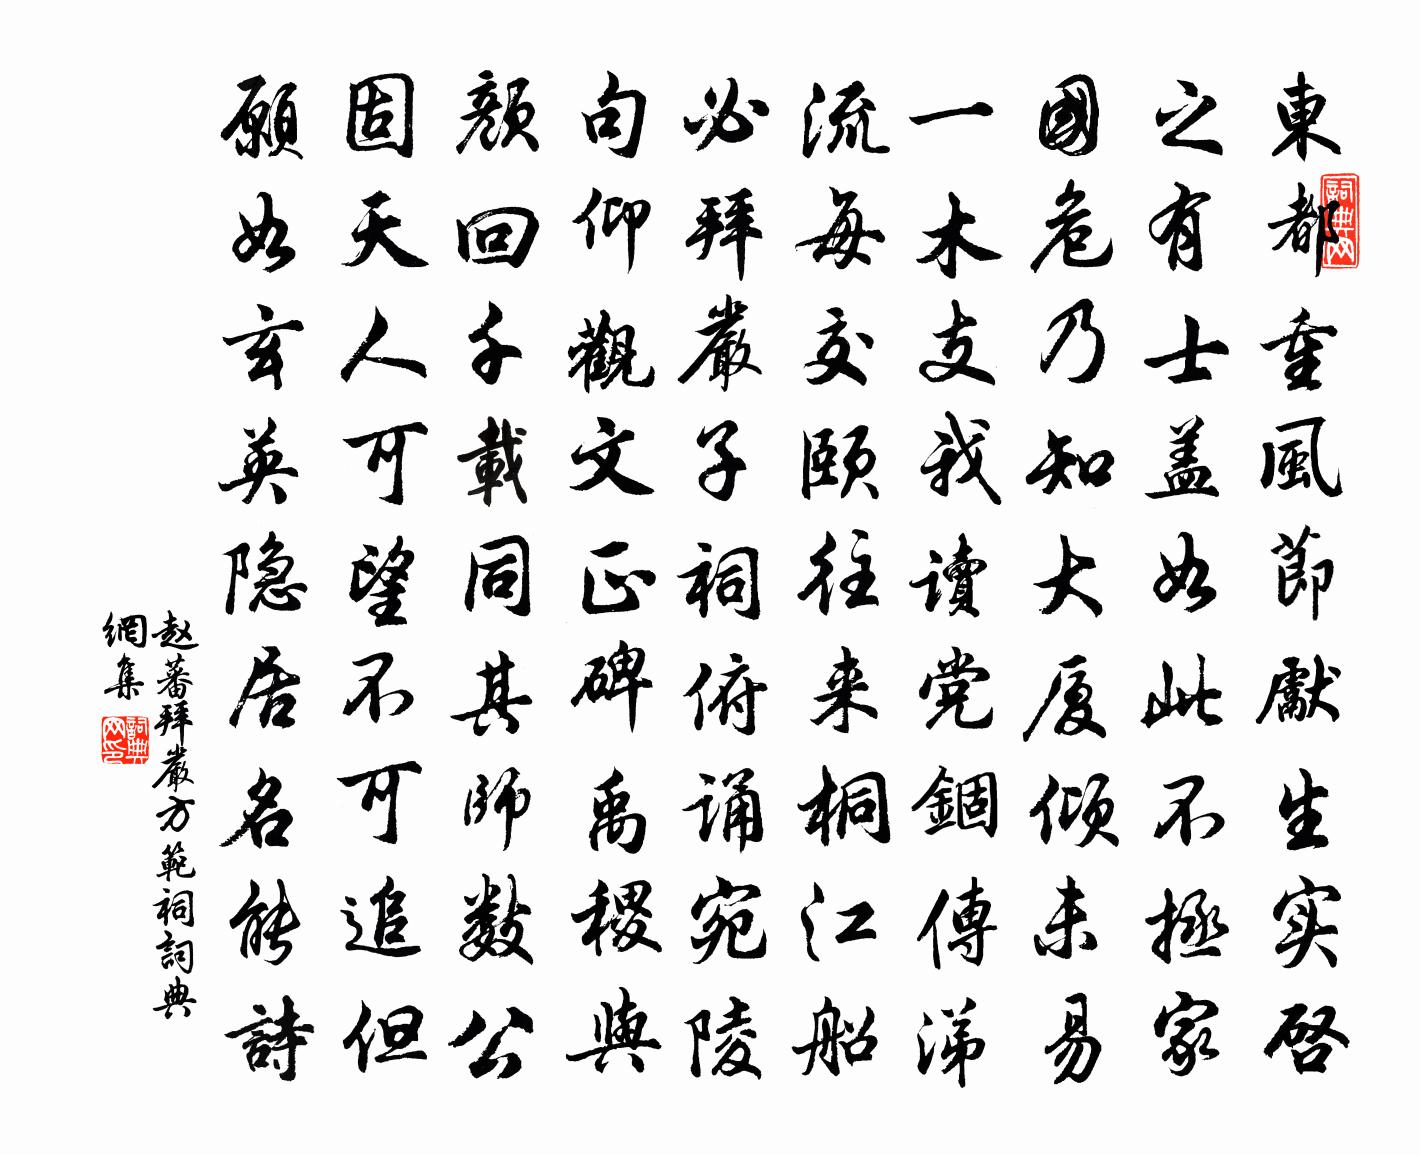 東都重風節獻生实啓
之有士盖如此不拯家
國危乃知大厦倾未易
一木支我讀党錮傳涕
流每交颐往来桐江船
必拜嚴子祠俯诵宛陵
句仰觀文正碑禹稷與
颜回千載同其師数公
固天人可望不可追但
願如玄英隐居名能詩
赵蕃拜嚴方範祠詞典
網集
詞典网
詞典网印